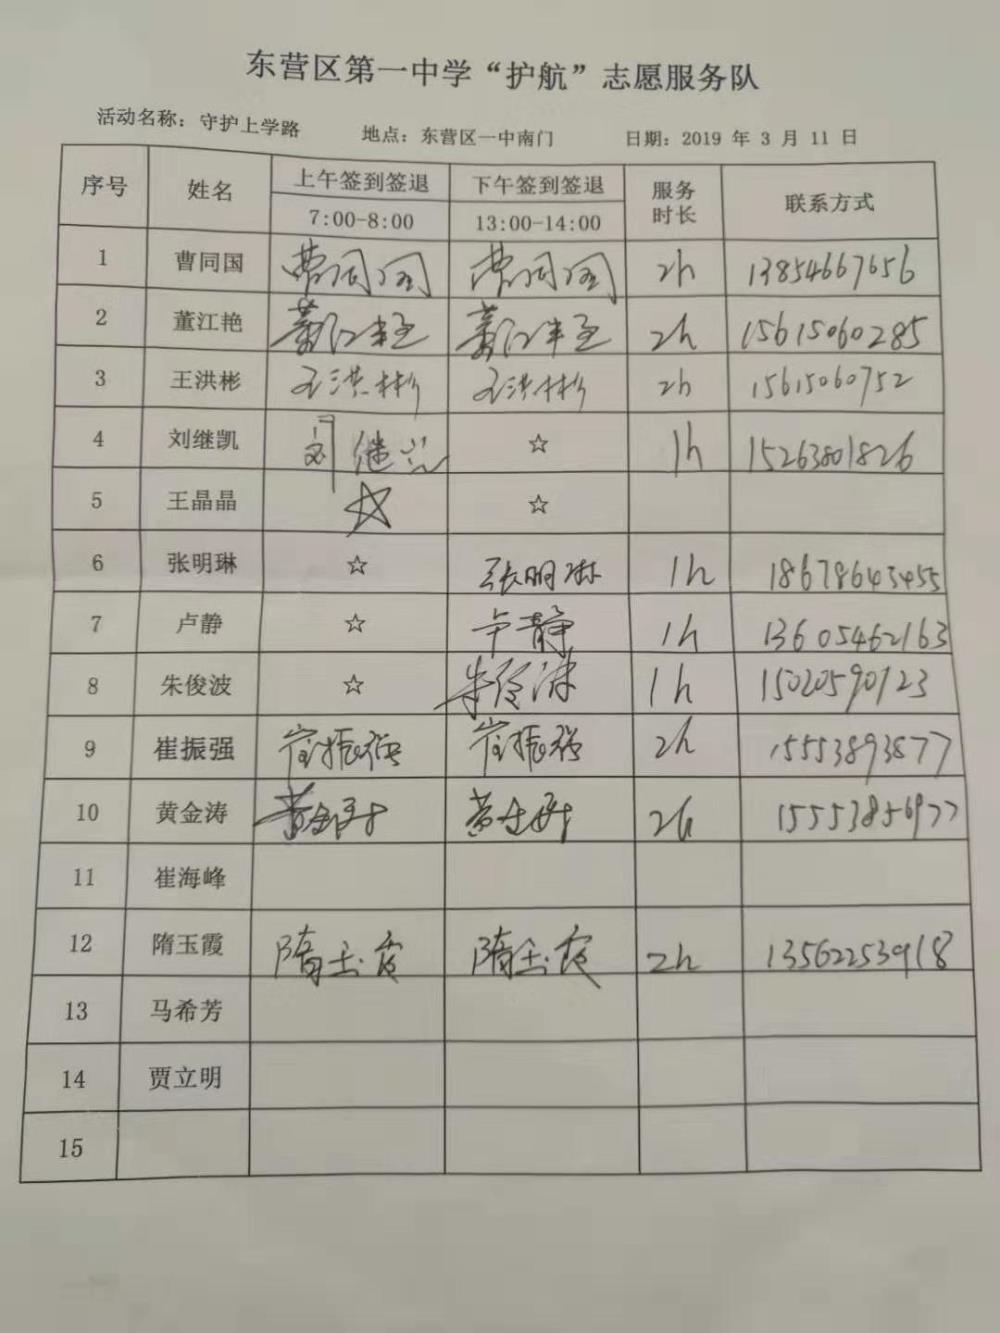 东营区第一中学“护航”志愿服务队
活动名称：守护上学路 地点：东营区一中南门 日期：2019 年 3 月 11 日
序号 姓名 上午签到签退 下午签到签退 服务时长 联系方式
7:00-8:00 13:00-14:00
1 曹同国 曹同国 曹同国 2h 13854667656
2 董江艳 董江艳 董江艳 2h 15615060285
3 王洪彬 王洪彬 王洪彬 2h 15615060752
4 刘继凯 刘继 ☆ 1h 15263801826
5 王晶晶 ☆ ☆
6 张明琳 ☆ 张明琳 1h 18678643455
7 卢静 ☆ 卢静 1h 13605462163
8 朱俊波 ☆ 朱俊波 1h 15020590123
9 崔振强 崔振强 崔振强 2h 15553893877
10 黄金涛 黄金涛 黄金涛 2h 15553856977
11 崔海峰
12 隋玉霞 隋玉霞 隋玉霞 2h 13562253918
13 马希芳
14 贾立明
15